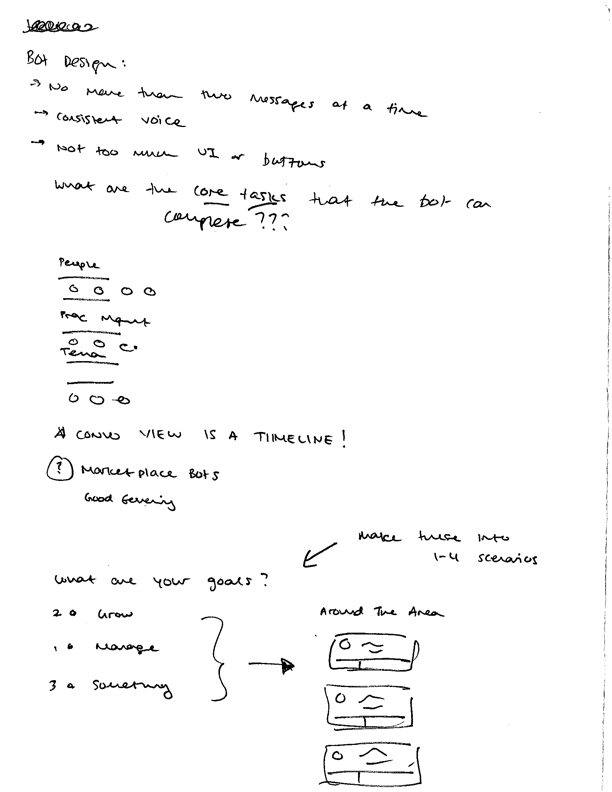 Bot Design:
→ No more than two messages at a time
→ consistent voice
→ Not too much UI or buttons
What are the core tasks that the bot can
complete ???
People
Prac Mgmt
* CONVO VIEW IS A TIMELINE!
? Marketplace Bots
Good
make these into
1-4 scenarios
What are your goals?
2 Grow
1 Manage
3 Something
Around The Area